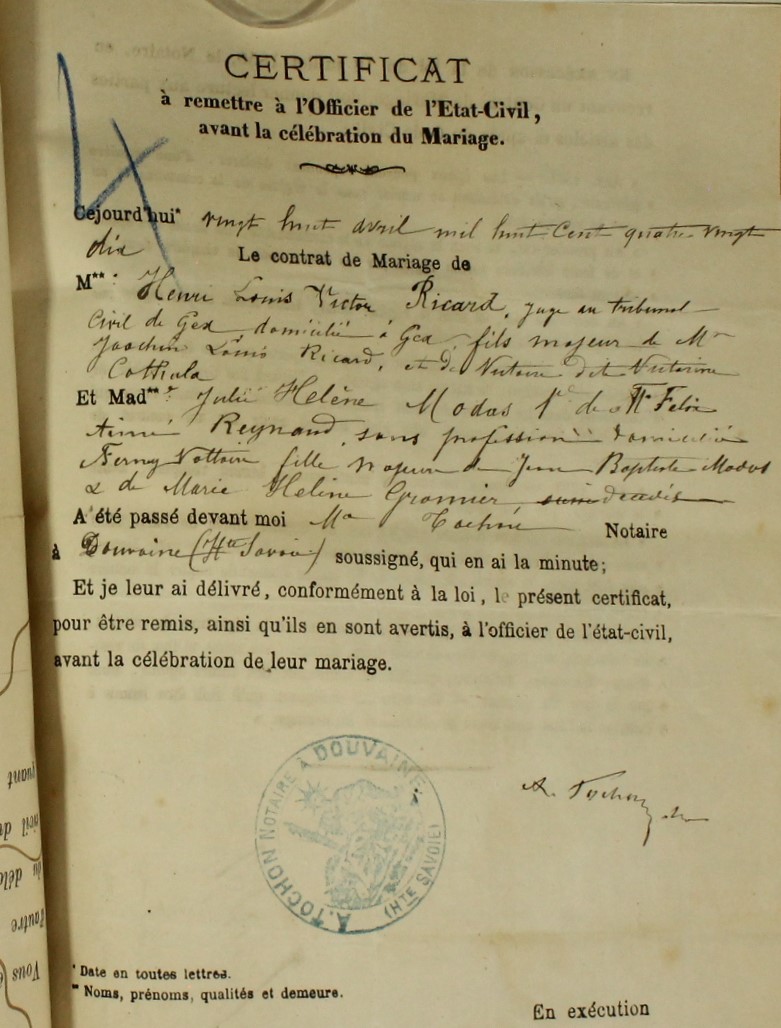 CERTIFICAT
à remettre à l'Officier de l'Etat-Civil,
avant la célébration du Mariage.
Cejourd'hui* vingt huit avril mil huit cent quatre vingt
dix Le contrat de Mariage de
M**: Henri Louis Victor Ricard, juge au tribunal
Civil de Gex, domicilié à Gex fils majeur de Mr
Joachim Louis Ricard, et de Victoire dite Victorine
Et Mad**: Julie Helène Modas Ve de Mr Felix
Aimé Reynaud, sans profession domiciliée
Ferney Voltaire fille majeure de Jean Baptiste Modas
& de Marie Helène Gromier,
A été passé devant moi Me Tochon Notaire
à Douvaine (Hte Savoie) soussigné, qui en ai la minute;
Et je leur ai délivré, conformément à la loi, le présent certificat,
pour être remis, ainsi qu'ils en sont avertis, à l'officier de l'état-civil,
avant la célébration de leur mariage.
A. TOCHON NOTAIRE À DOUVAINE
(HTE SAVOIE)
A. Tochon
* Date en toutes lettres.
** Noms, prénoms, qualités et demeure.
En exécution
quant
du déla
l'autre
Vous